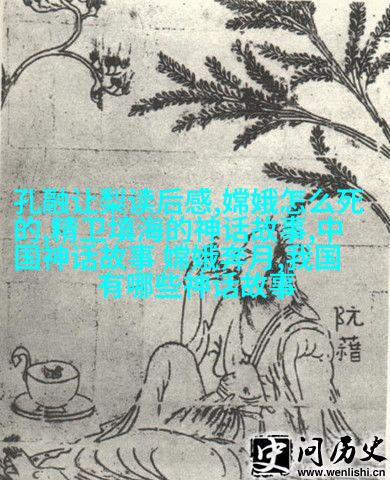 孔融让梨读后感,嫦娥怎么死
的,精卫填海的神话故事,中
国神话故事,嫦娥奔月,我国
有哪些神话故事
阮藉
史问历史
www.wenlishi.cn